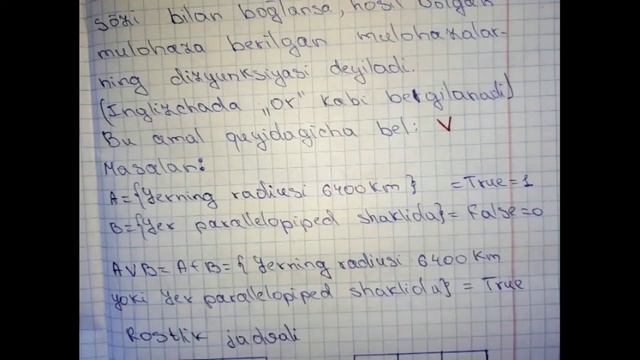 sözi bilan bog'lansa, hosil bolgan
mulohaza berilgan mulohazalar-
ning dizyunksiyasi deyiladi.
(Inglizchada „or" kabi belgilanadi)
Bu amal quyidagicha bel: V
Masalan:
A={Yerning radiusi 6400km} =True=1
B={Yer parallelopiped shaklida}= False=0
AVB=A+B={Yerning radiusi 6400km
yoki Yer parallelopiped shaklida} = True
Rostlik jadvali